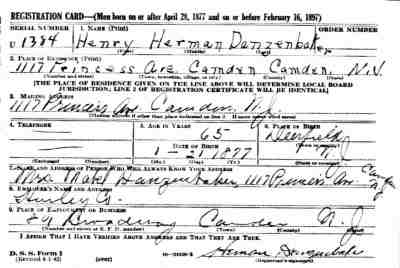 REGISTRATION CARD—(Men born on or after April 28, 1877 and on or before February 16, 1897)
SERIAL NUMBER 1. NAME (Print) ORDER NUMBER
U 1384 Henry Herman Danzenbaker
2. PLACE OF RESIDENCE (Print)
1117 Princess Ave Camden Camden, N.J.
(Number and street) (Town, township, village, or city) (County) (State)
[THE PLACE OF RESIDENCE GIVEN ON THE LINE ABOVE WILL DETERMINE LOCAL BOARD
JURISDICTION; LINE 2 OF REGISTRATION CERTIFICATE WILL BE IDENTICAL]
3. MAILING ADDRESS
1117 Princess Ave Camden, N.J.
4. TELEPHONE 5. AGE IN YEARS 6. PLACE OF BIRTH
65 Deerfield
DATE OF BIRTH
1-21-1877 N.J.
(Exchange) (Number) (Mo.) (Day) (Yr.) (State or country)
7. NAME AND ADDRESS OF PERSON WHO WILL ALWAYS KNOW YOUR ADDRESS
Mrs Danzenbaker, 1117 Princess Ave Camden NJ
8. EMPLOYER'S NAME AND ADDRESS
9. PLACE OF EMPLOYMENT OR BUSINESS
Broadway Camden N.J.
(Number and street or R. F. D. number) (Town) (County) (State)
I AFFIRM THAT I HAVE VERIFIED ABOVE ANSWERS AND THAT THEY ARE TRUE.
D. S. S. Form 1
Herman Danzenbaker